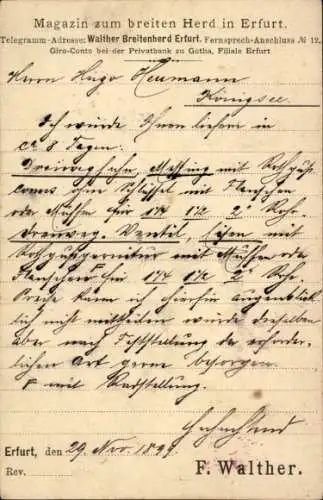 Magazin zum breiten Herd in Erfurt.
Telegramm-Adresse: Walther Breitenherd Erfurt. Fernsprech-Anschluss № 12.
Giro-Conto bei der Privatbank zu Gotha, Filiale Erfurt
Herrn Hugo Heumann
Königsee.
Ich würde Ihnen liefern in
ca 8 Tagen:
Dreiweghahn, Messing mit Rothguß
conus ohne Schlüssel mit Flanschen
oder Muffen für 1¼ 1½ 2" Rohr
Dreiweg-Ventil, Eisen mit
Rothgussgarnitur mit Muffen oder
Flanschen für 1¼ 1½ 2" Rohr.
Preise kann ich hierfür augenblick
lich nicht mittheilen würde dieselben
aber nach Feststellung der erforder-
lichen Art gerne besorgen.
mit Radstellung.
Hochachtend
Erfurt, den 29. Nov. 1899
Rev. F. Walther.